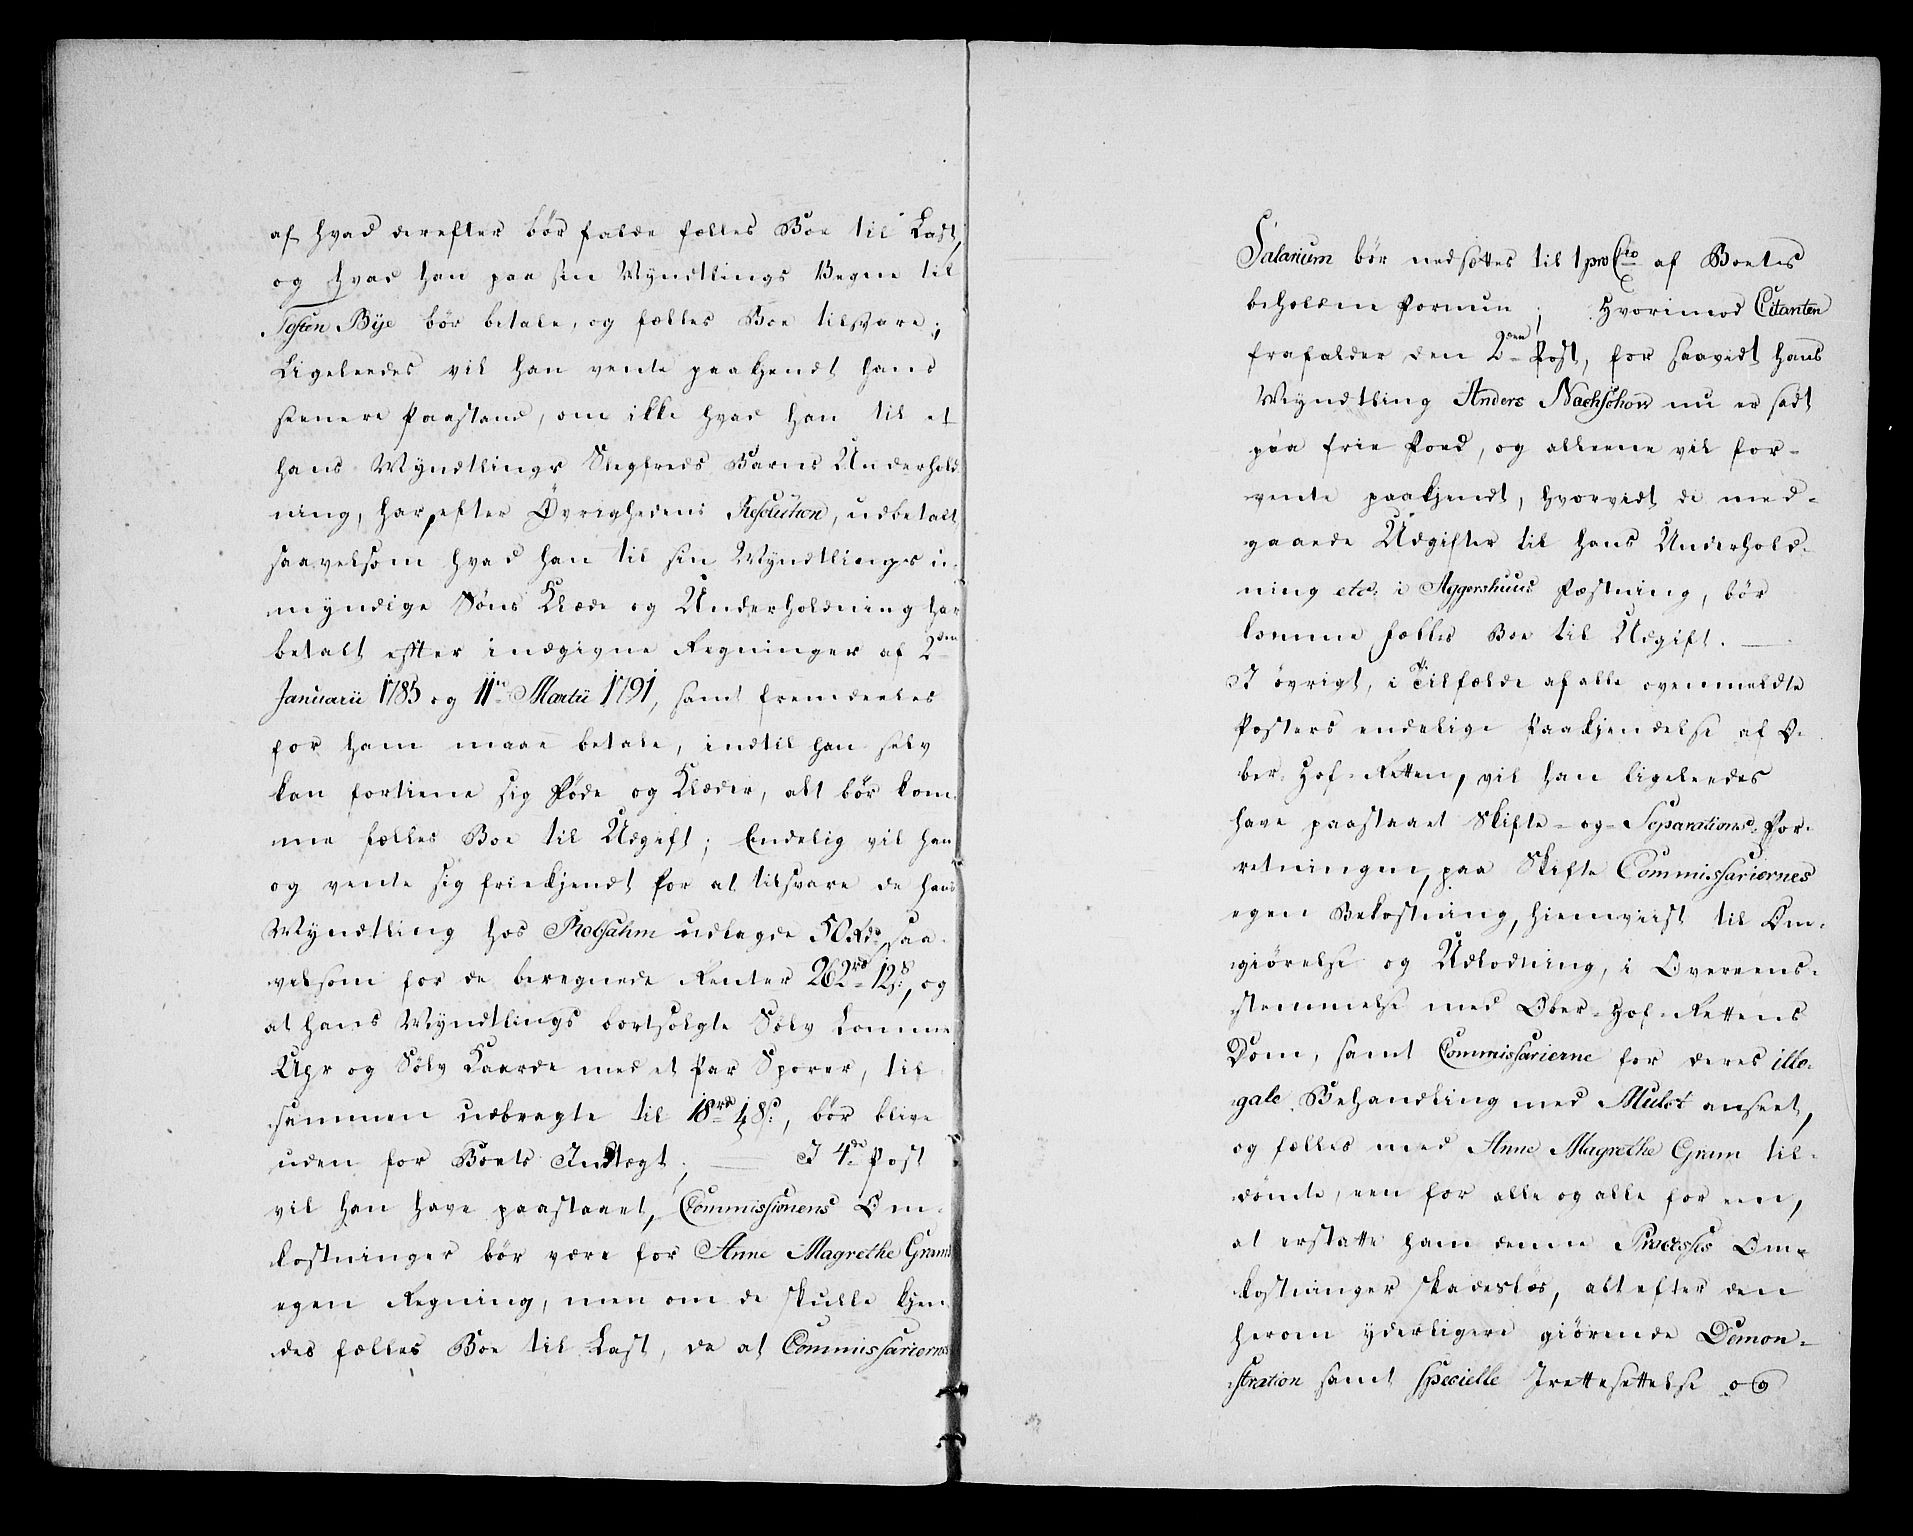 af hvad derefter bør falde fælles Boe til Last,
og hvad han paa sin Myndtlings Vegne til
Tosten Bye bør betale, og fælles Boe tilsvare;
Ligeleedes vil han vente paakjendt hans
seenere Paastand, om ikke hvad han til et
hans Myndtlings Slegfreds Barns Underhold
ning, har, efter Øvrighedens Resolution, udbetalt
saavelsom hvad han til sin Myndtlings u-
myndige Søns Klæde og Underholdning har
betalt efter indgivne Regninger af 2den
Januarii 1785 og 11te Martii 1791, samt fremdeeles
for ham maae betale, indtil han selv
kan fortiene sig Føde og Klæder, alt bør kom-
me fælles Boe til Udgift; Endelig vil han
og vente sig friekjendt for at tilsvare de hans
Myndtling hos Robsahm udlagde 50 Rd, saa-
velsom for de beregnede Renter 262rd 12s, og
at hans Myndtlings bortsolgte Sølv Lomme
Uhr og Sølv Kaarde med et Par Sporer, til-
sammen udbragte til 18rd 48s, bør blive
uden for Boets Indtægt; — I 4de Post
vil han have paastaaet, Commissionens Om-
kostninger bør være for Anne Magrethe Grams
egen Regning, men om de skulle kjen-
des fælles Boe til Last, da at Commissariernes
Salarium bør nedsættes til 1 pro Cto af Boetes
beholdne Formue; Hvorimod Citanten
frafalder den 2den Post, for saavidt hans
Myndtling Anders Nachschow nu er sadt
paa frie Foed, og alleene vil for-
vente paakjendt, hvorvidt de med-
gaaede Udgifter til hans Underhold-
ning etc: i Aggershuus Fæstning, bør
komme fælles Boe til Udgift. —
I øvrigt, i Tilfælde af alle ovenmeldte
Posters endelige Paakjendelse af O-
ber-Hof-Retten, vil han ligeleedes
have paastaaet Skifte- og Separations-For-
retningen, paa Skifte Commissariernes
egen Bekostning, hiemviist til Om-
giørelse og Udlodning, i Overeens-
stemmelse med Ober-Hof-Rettens
Dom, samt Commissarierne for deres ille-
gale Behandling med Mulct anseet,
og fælles med Anne Magrethe Gram til-
dømte, een for alle og alle for een,
at erstatte ham denne Processes Om-
kostninger skadesløs, alt efter den
herom yderligere giørende Demon-
stration samt specielle Irettesettelse og